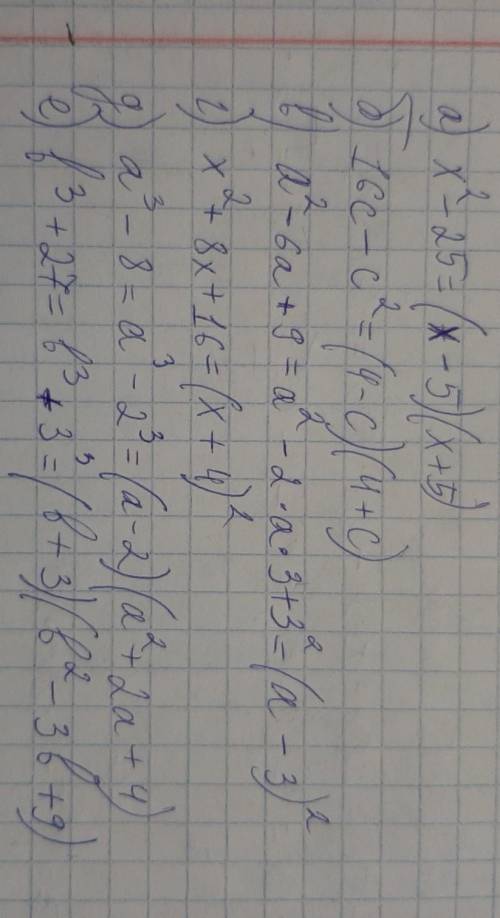 а) x² - 25 = (x - 5)(x + 5)
б) 16c - c² = (4 - c)(4 + c)
в) a² - 6a + 9 = a² - 2·a·3 + 3² = (a - 3)²
г) x² + 8x + 16 = (x + 4)²
д) a³ - 8 = a³ - 2³ = (a - 2)(a² + 2a + 4)
е) b³ + 27 = b³ + 3³ = (b + 3)(b² - 3b + 9)